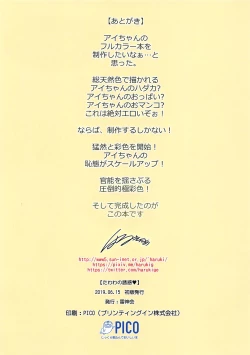 【あとがき】
アイちゃんの
フルカラー本を
制作したいなぁ…と
思った。
総天然色で描かれる
アイちゃんのハダカ?
アイちゃんのおっぱい?
アイちゃんのおマンコ?
これは絶対エロいぞぉ!
ならば、制作するしかない!
猛然と彩色を開始!
アイちゃんの
恥態がスケールアップ!
官能を揺さぶる
圧倒的極彩色!
そして完成したのが
この本です
2019.06.15 初版発行
発行:雷神会
印刷:PICO(プリンティングイン株式会社)
PICO